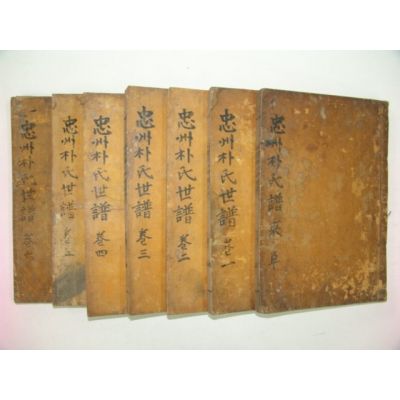 忠州朴氏譜 單
忠州朴氏世譜 卷一
忠州朴氏世譜 卷二
忠州朴氏世譜 卷三
忠州朴氏世譜 卷四
忠州朴氏世譜 卷五
忠州朴氏世譜 卷六